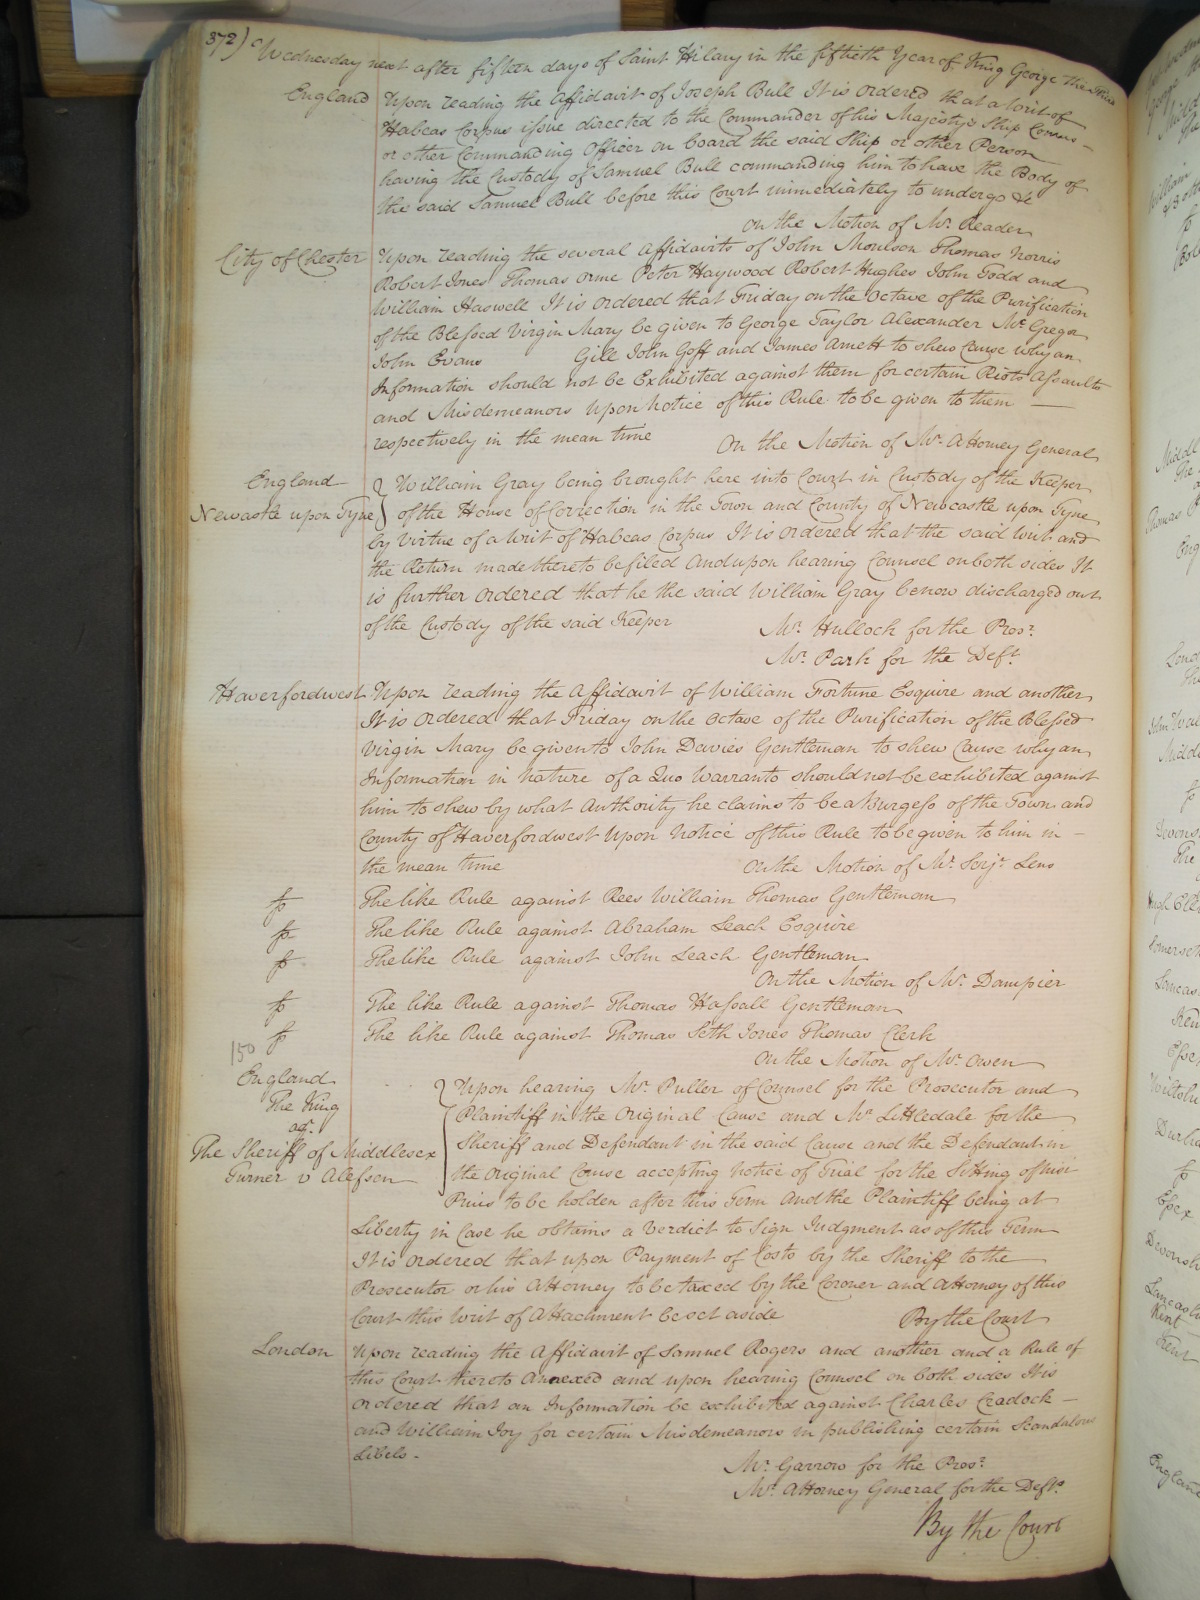 372) Wednesday next after fifteen days of Saint Hilary in the fiftieth Year of King George the Third
England Upon reading the Affidavit of Joseph Bull It is ordered that a Writ of
Habeas Corpus issue directed to the Commander of his Majesty's Ship
or other Commanding Officer on board the said Ship or other Person
having the Custody of Samuel Bull commanding him to have the Body of
the said Samuel Bull before this Court immediately to undergo &c
On the Motion of Mr. Reader
City of Chester Upon reading the several Affidavits of John Moulson Thomas Norris
Robert Jones Thomas Orme Peter Haywood Robert Hughes John Todd and
William Haswell It is ordered that Friday on the Octave of the Purification
of the Blessed Virgin Mary be given to George Taylor Alexander Mc Gregor
John Evans Gill John Goff and James Amett to shew Cause why an
Information should not be Exhibited against them for certain Riots Assaults
and Misdemeanors Upon Notice of this Rule to be given to them —
respectively in the mean time On the Motion of Mr. Attorney General
England William Gray being brought here into Court in Custody of the Keeper
Newcastle upon Tyne of the House of Correction in the Town and County of Newcastle upon Tyne
by Virtue of a Writ of Habeas Corpus It is ordered that the said Writ and
the Return made thereto be filed And upon hearing Counsel on both sides It
is further ordered that he the said William Gray be now discharged out
of the Custody of the said Keeper Mr. Hullock for the Prosr.
Mr. Park for the Deft.
Haverfordwest Upon reading the Affidavit of William Fortune Esquire and another
It is ordered that Friday on the Octave of the Purification of the Blessed
Virgin Mary be given to John Davies Gentleman to shew Cause why an
Information in nature of a Quo Warranto should not be exhibited against
him to shew by what Authority he claims to be a Burgess of the Town and
County of Haverfordwest Upon Notice of this Rule to be given to him in –
the mean time On the Motion of Mr. Serjt. Lens
The like Rule against Rees William Thomas Gentleman
The like Rule against Abraham Leach Esquire
The like Rule against John Leach Gentleman
On the Motion of Mr. Dampier
The like Rule against Thomas Hassall Gentleman
The like Rule against Thomas Seth Jones Thomas Clerk
150
On the Motion of Mr. Owen
England Upon hearing Mr. Puller of Counsel for the Prosecutor and
The King Plaintiff in the Original Cause and Mr. Littledale for the
agt.
The Sheriff of Middlesex Sheriff and Defendant in the said Cause and the Defendant in
Turner v Alefson the Original Cause accepting Notice of Trial for the Sitting of Nisi
Prius to be holden after this Term And the Plaintiff being at
Liberty in Case he obtains a Verdict to Sign Judgment as of this Term
It is ordered that upon Payment of Costs by the Sheriff to the
Prosecutor or his Attorney to be taxed by the Coroner and Attorney of this
Court this Writ of Attachment be set aside By the Court
London Upon reading the Affidavit of Samuel Rogers and another and a Rule of
this Court thereto Annexed and upon hearing Counsel on both sides It is
ordered that an Information be exhibited against Charles Cradock –
and William Joy for certain Misdemeanors in publishing certain Scandalous
Libels.
Mr. Garrow for the Prosr.
Mr. Attorney General for the Defts.
By the Court